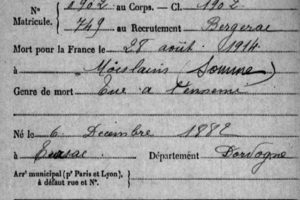 N° 1902 au Corps. — Cl. 1902
Matricule. 749 au Recrutement Bergerac
Mort pour la France le 28 août 1914
à Moislains Somme)
Genre de mort Tué à l'ennemi
Né le 6 Décembre 1882
à Département Dordogne
Arr^t municipal (p^r Paris et Lyon),
à défaut rue et N°.